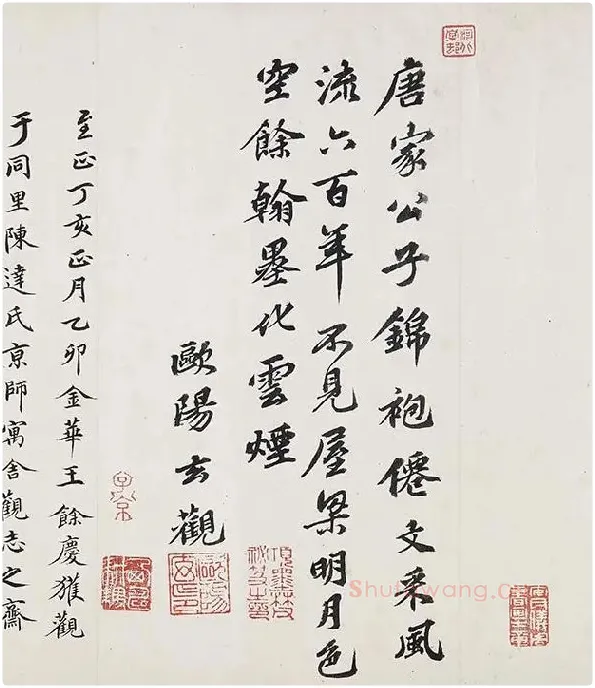 唐家公子錦袍僊文采風
流六百年不見屋梁明月色
空餘翰墨化雲煙
歐陽玄觀
至正丁亥正月乙卯金華王餘慶獲觀
于同里陳達氏京師寓舍觀志之齋